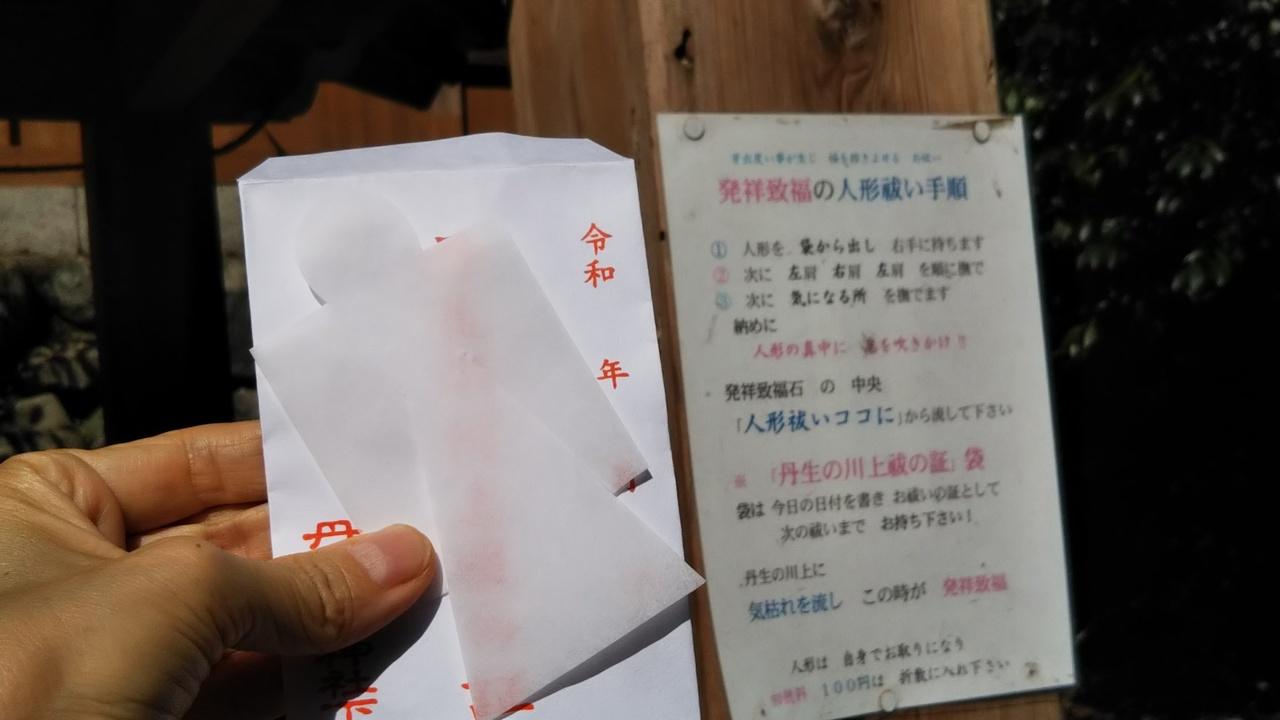 令和
年
丹
神社
芽出度い事が生じ 福を招きよせる お祓い
発祥致福の人形祓い手順
① 人形を、袋から出し 右手に持ちます
② 次に 左肩 右肩 左肩 を順に撫で
③ 次に 気になる所 を撫でます
納めに
人形の真中に 息を吹きかけ!!
発祥致福石 の 中央
「人形祓いココに」から流して下さい
※ 「丹生の川上祓の証」袋
袋は 今日の日付を書き お祓いの証として
次の祓いまで お持ち下さい!
丹生の川上に
気枯れを流し この時が 発祥致福
人形は 自身でお取りになり
初穂料 100円は 折敷に入れ下さい